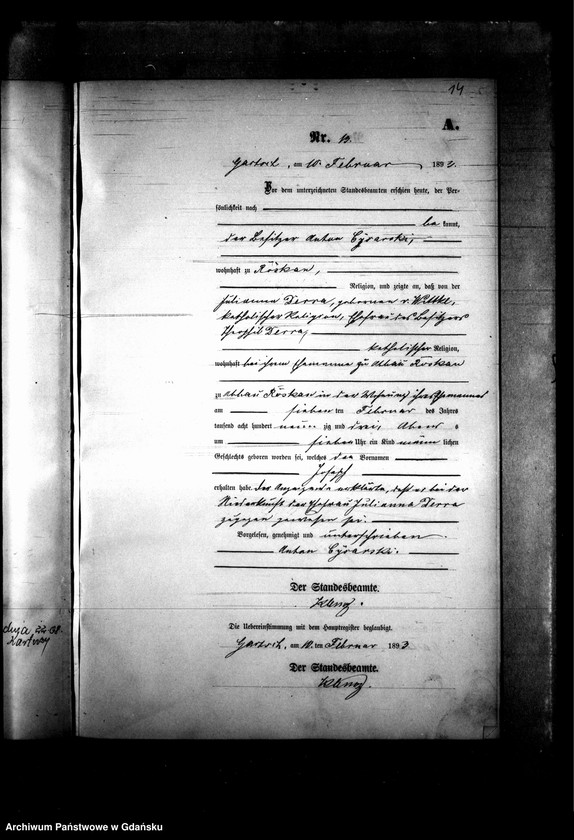 14
A.
Nr. 13.
am 10. Februar 1893.
Vor dem unterzeichneten Standesbeamten erschien heute, der Per-
sönlichkeit nach
be kannt,
der Besitzer Anton Cysarski,
wohnhaft zu Röskau,
Religion, und zeigte an, daß von der
Julianna Derra, geborenen v.
katholischer Religion, Ehefrau des Besitzers
Theophil Derra,
katholischer Religion,
wohnhaft bei ihrem Ehemanne zu Abbau Röskau
zu Abbau Röskau in der Wohnung ihres Ehemannes
am sieben ten Februar des Jahres
tausend acht hundert neun zig und drei, Abend s
um sieben Uhr ein Kind männ lichen
Geschlechts geboren worden sei, welches den Vornamen
Joseph
erhalten habe. Der Anzeigende erklärte, daß er bei der
Niederkunft der Ehefrau Julianna Derra
zugegen gewesen sei.
Vorgelesen, genehmigt und unterschrieben
Anton Cysarski.
Der Standesbeamte.
Die Uebereinstimmung mit dem Hauptregister beglaubigt.
am 10. ten Februar 1893
Der Standesbeamte.
Archiwum Państwowe w Gdańsku